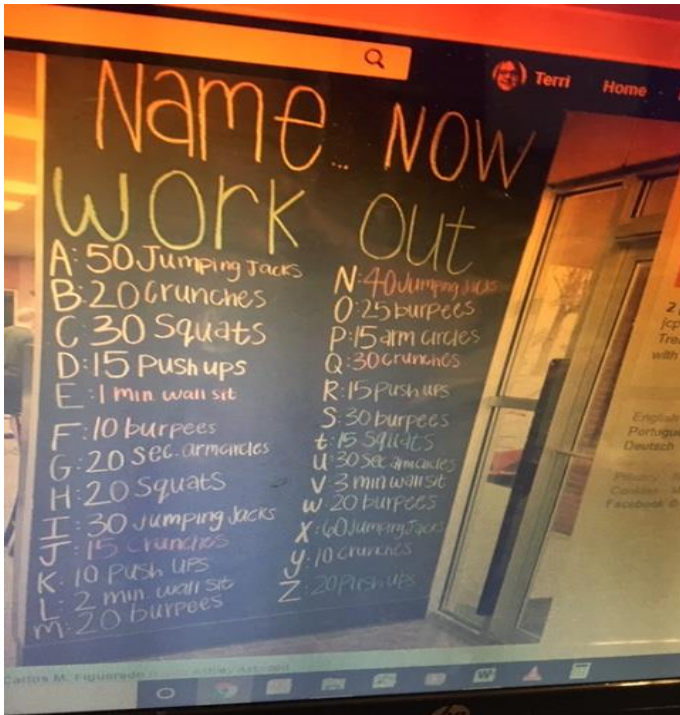 Terri Home
Name... Now
work out
A: 50 Jumping Jacks
B: 20 crunches
C: 30 Squats
D: 15 Push ups
E: 1 min. wall sit
F: 10 burpees
G: 20 sec. arm circles
H: 20 Squats
I: 30 Jumping Jacks
J: 15 crunches
K: 10 Push ups
L: 2 min. wall sit
m: 20 burpees
N: 40 Jumping Jacks
O: 25 burpees
P: 15 arm circles
Q: 30 crunches
R: 15 Push ups
S: 30 burpees
t: 15 Squats
u: 30 sec. arm circles
V: 3 min wall sit
w: 20 burpees
X: 60 Jumping Jacks
y: 10 crunches
Z: 20 Push ups
2
jcp
Tre
with
English
Portugu
Deutsch
Privacy
Cookies
Facebook ©
Carlos M. Figueredo